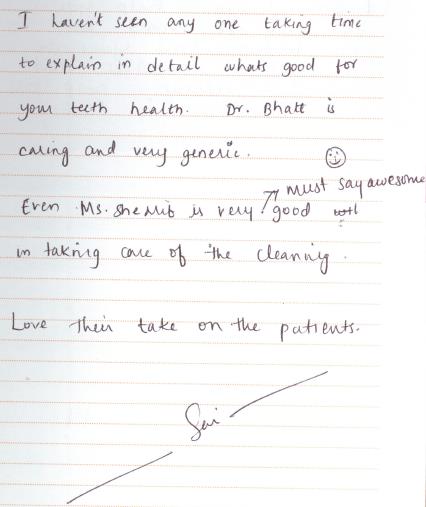 I haven't seen any one taking time
to explain in detail whats good for
your teeth health. Dr. Bhatt is
caring and very generic. ☺
must say awesome
Even Ms. Sherrib is very good
in taking care of the cleaning.
Love their take on the patients.
Sai